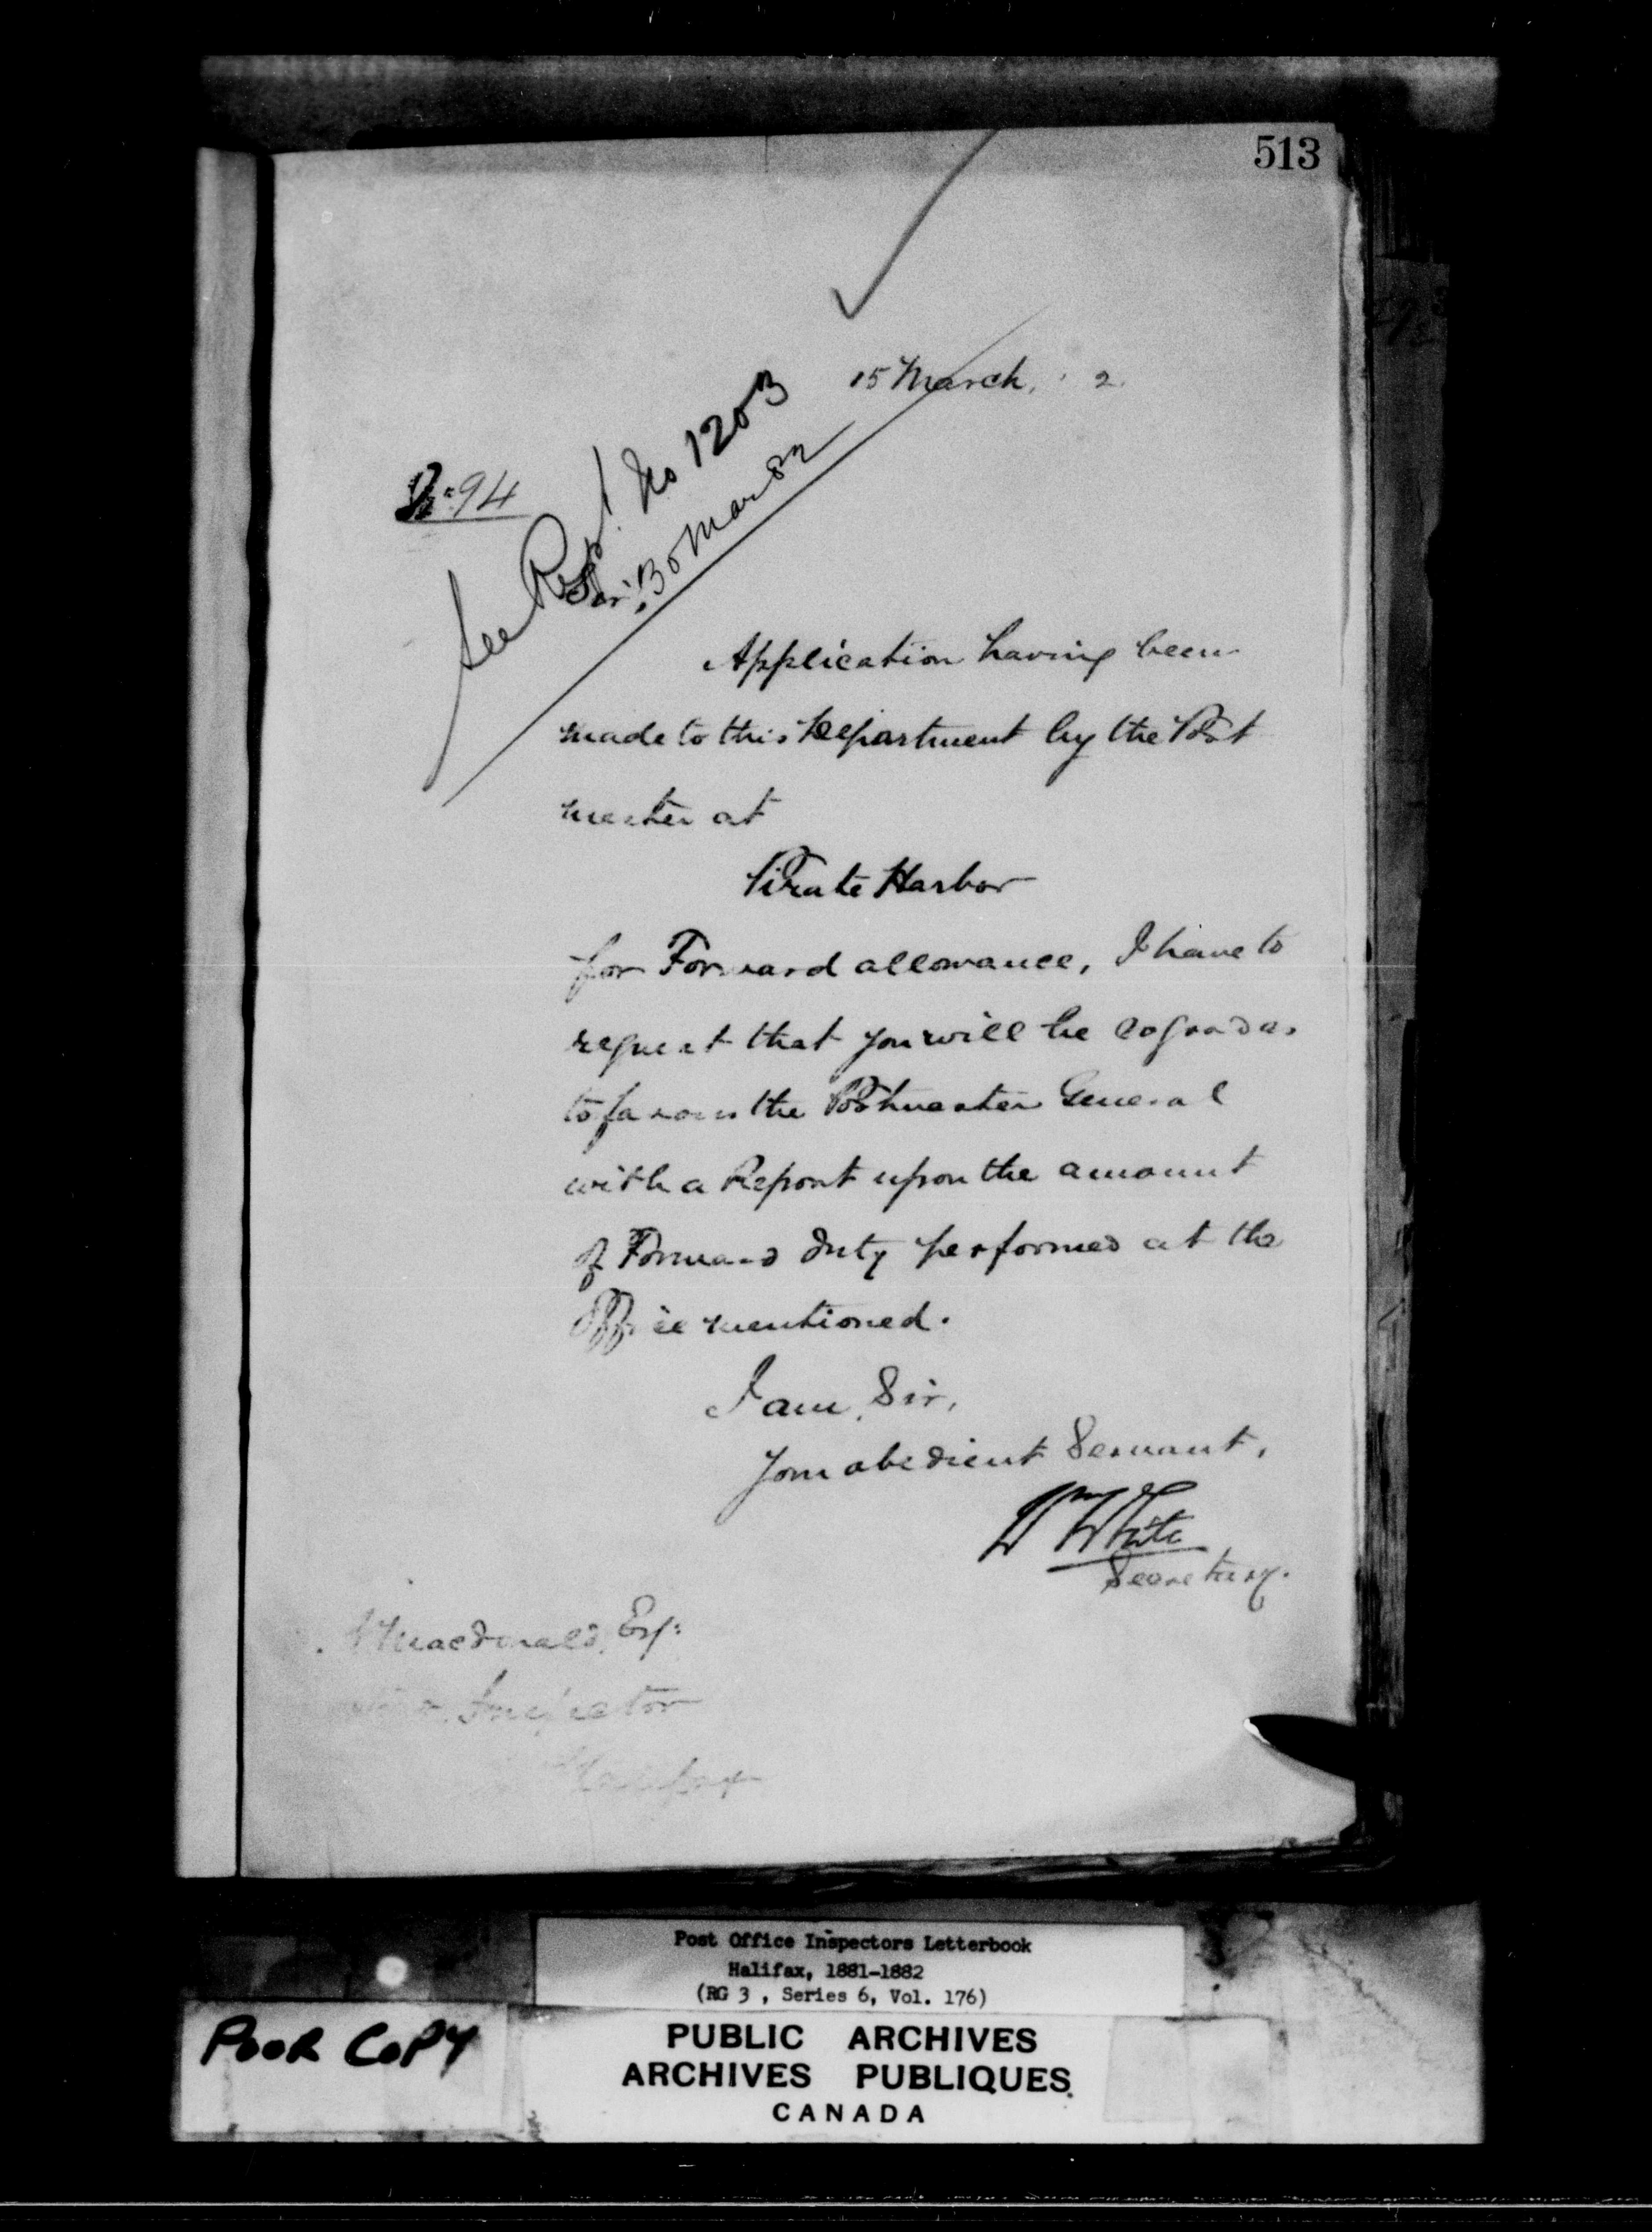 513
15 March, 2.
94
See Rept. No 1203
30 Mar 82
Sir,
Application having been
made to this Department by the Post
master at
Pirate Harbor
for Forward allowance, I have to
request that you will be so good as
to favour the Postmaster General
with a Report upon the amount
of Forward duty performed at the
Office mentioned.
I am, Sir,
Your obedient Servant,
Wm White
Secretary.
Macdonald, Esq:
Inspector
Halifax
Post Office Inspectors Letterbook
Halifax, 1881-1882
(RG 3 , Series 6, Vol. 176)
POOR COPY
PUBLIC ARCHIVES
ARCHIVES PUBLIQUES
CANADA